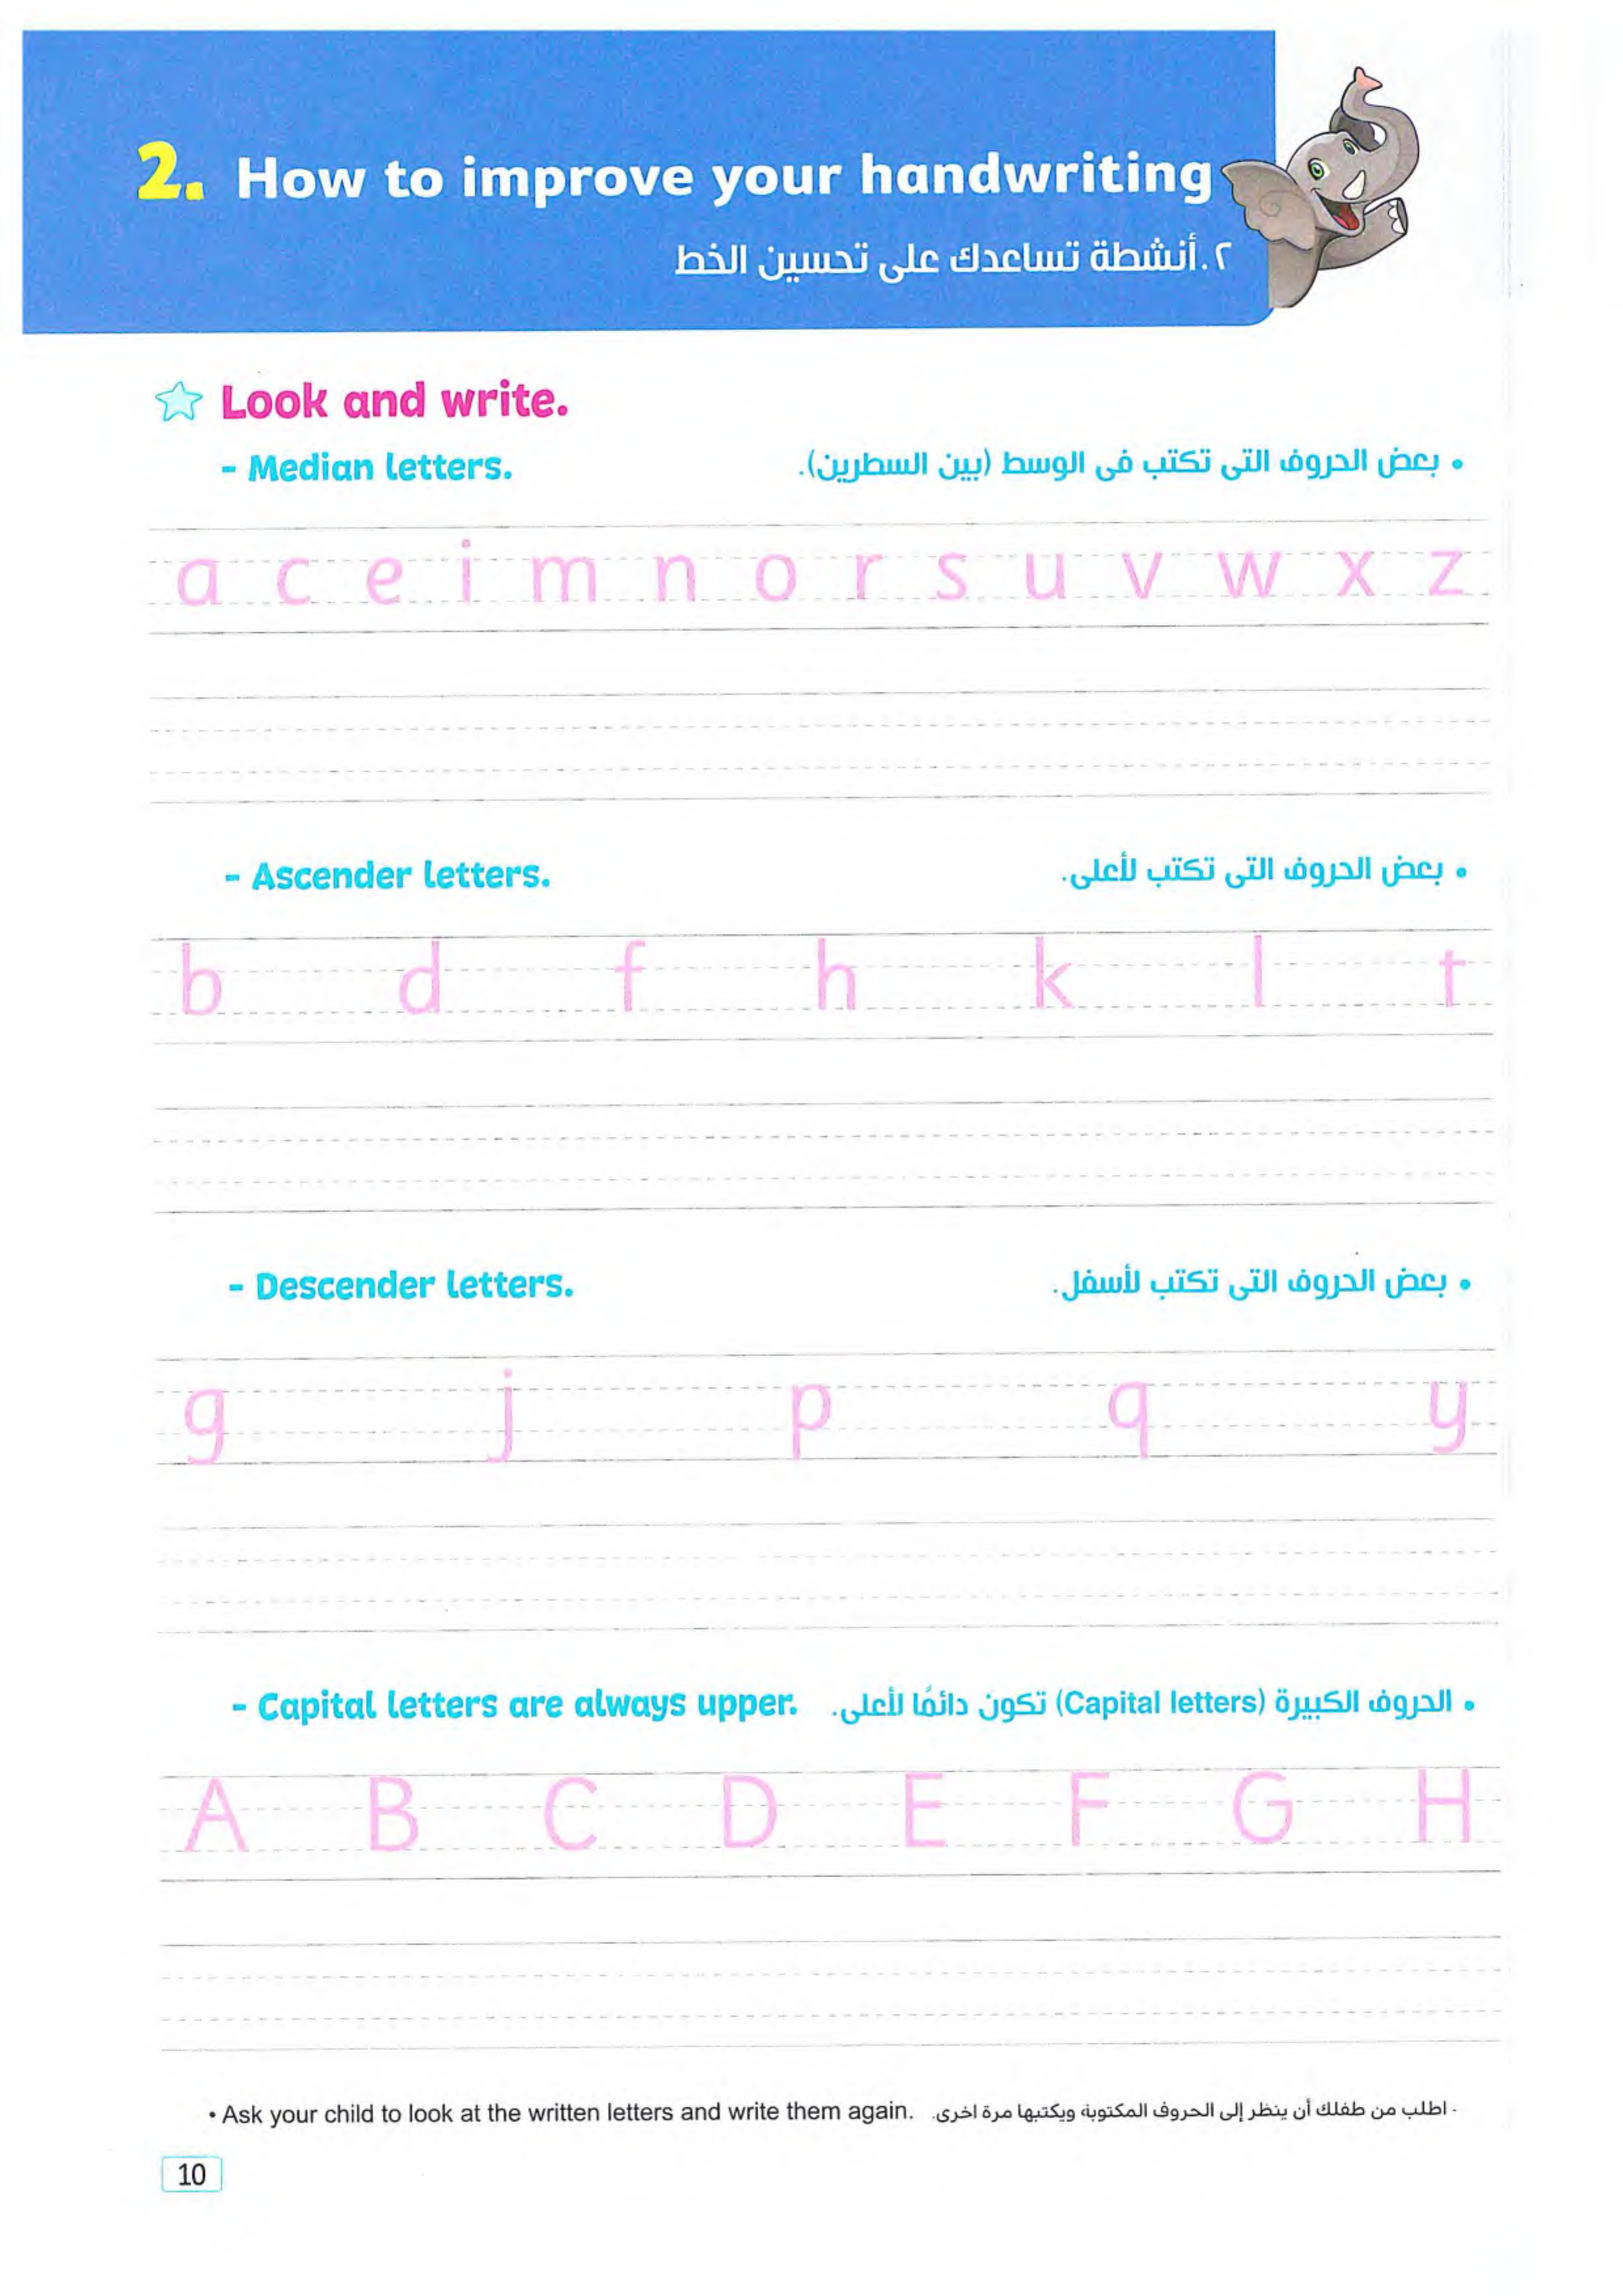 2. How to improve your handwriting
٢. أنشطة تساعدك على تحسين الخط
Look and write.
- Median letters.
• بعض الحروف التى تكتب فى الوسط (بين السطرين).
a c e i m n o r s u v w x z
- Ascender letters.
• بعض الحروف التى تكتب لأعلى.
b d f h k l t
- Descender letters.
• بعض الحروف التى تكتب لأسفل.
g j p q y
- Capital letters are always upper.
• الحروف الكبيرة (Capital letters) تكون دائمًا لأعلى.
A B C D E F G H
• Ask your child to look at the written letters and write them again.
- اطلب من طفلك أن ينظر إلى الحروف المكتوبة ويكتبها مرة اخرى.
10